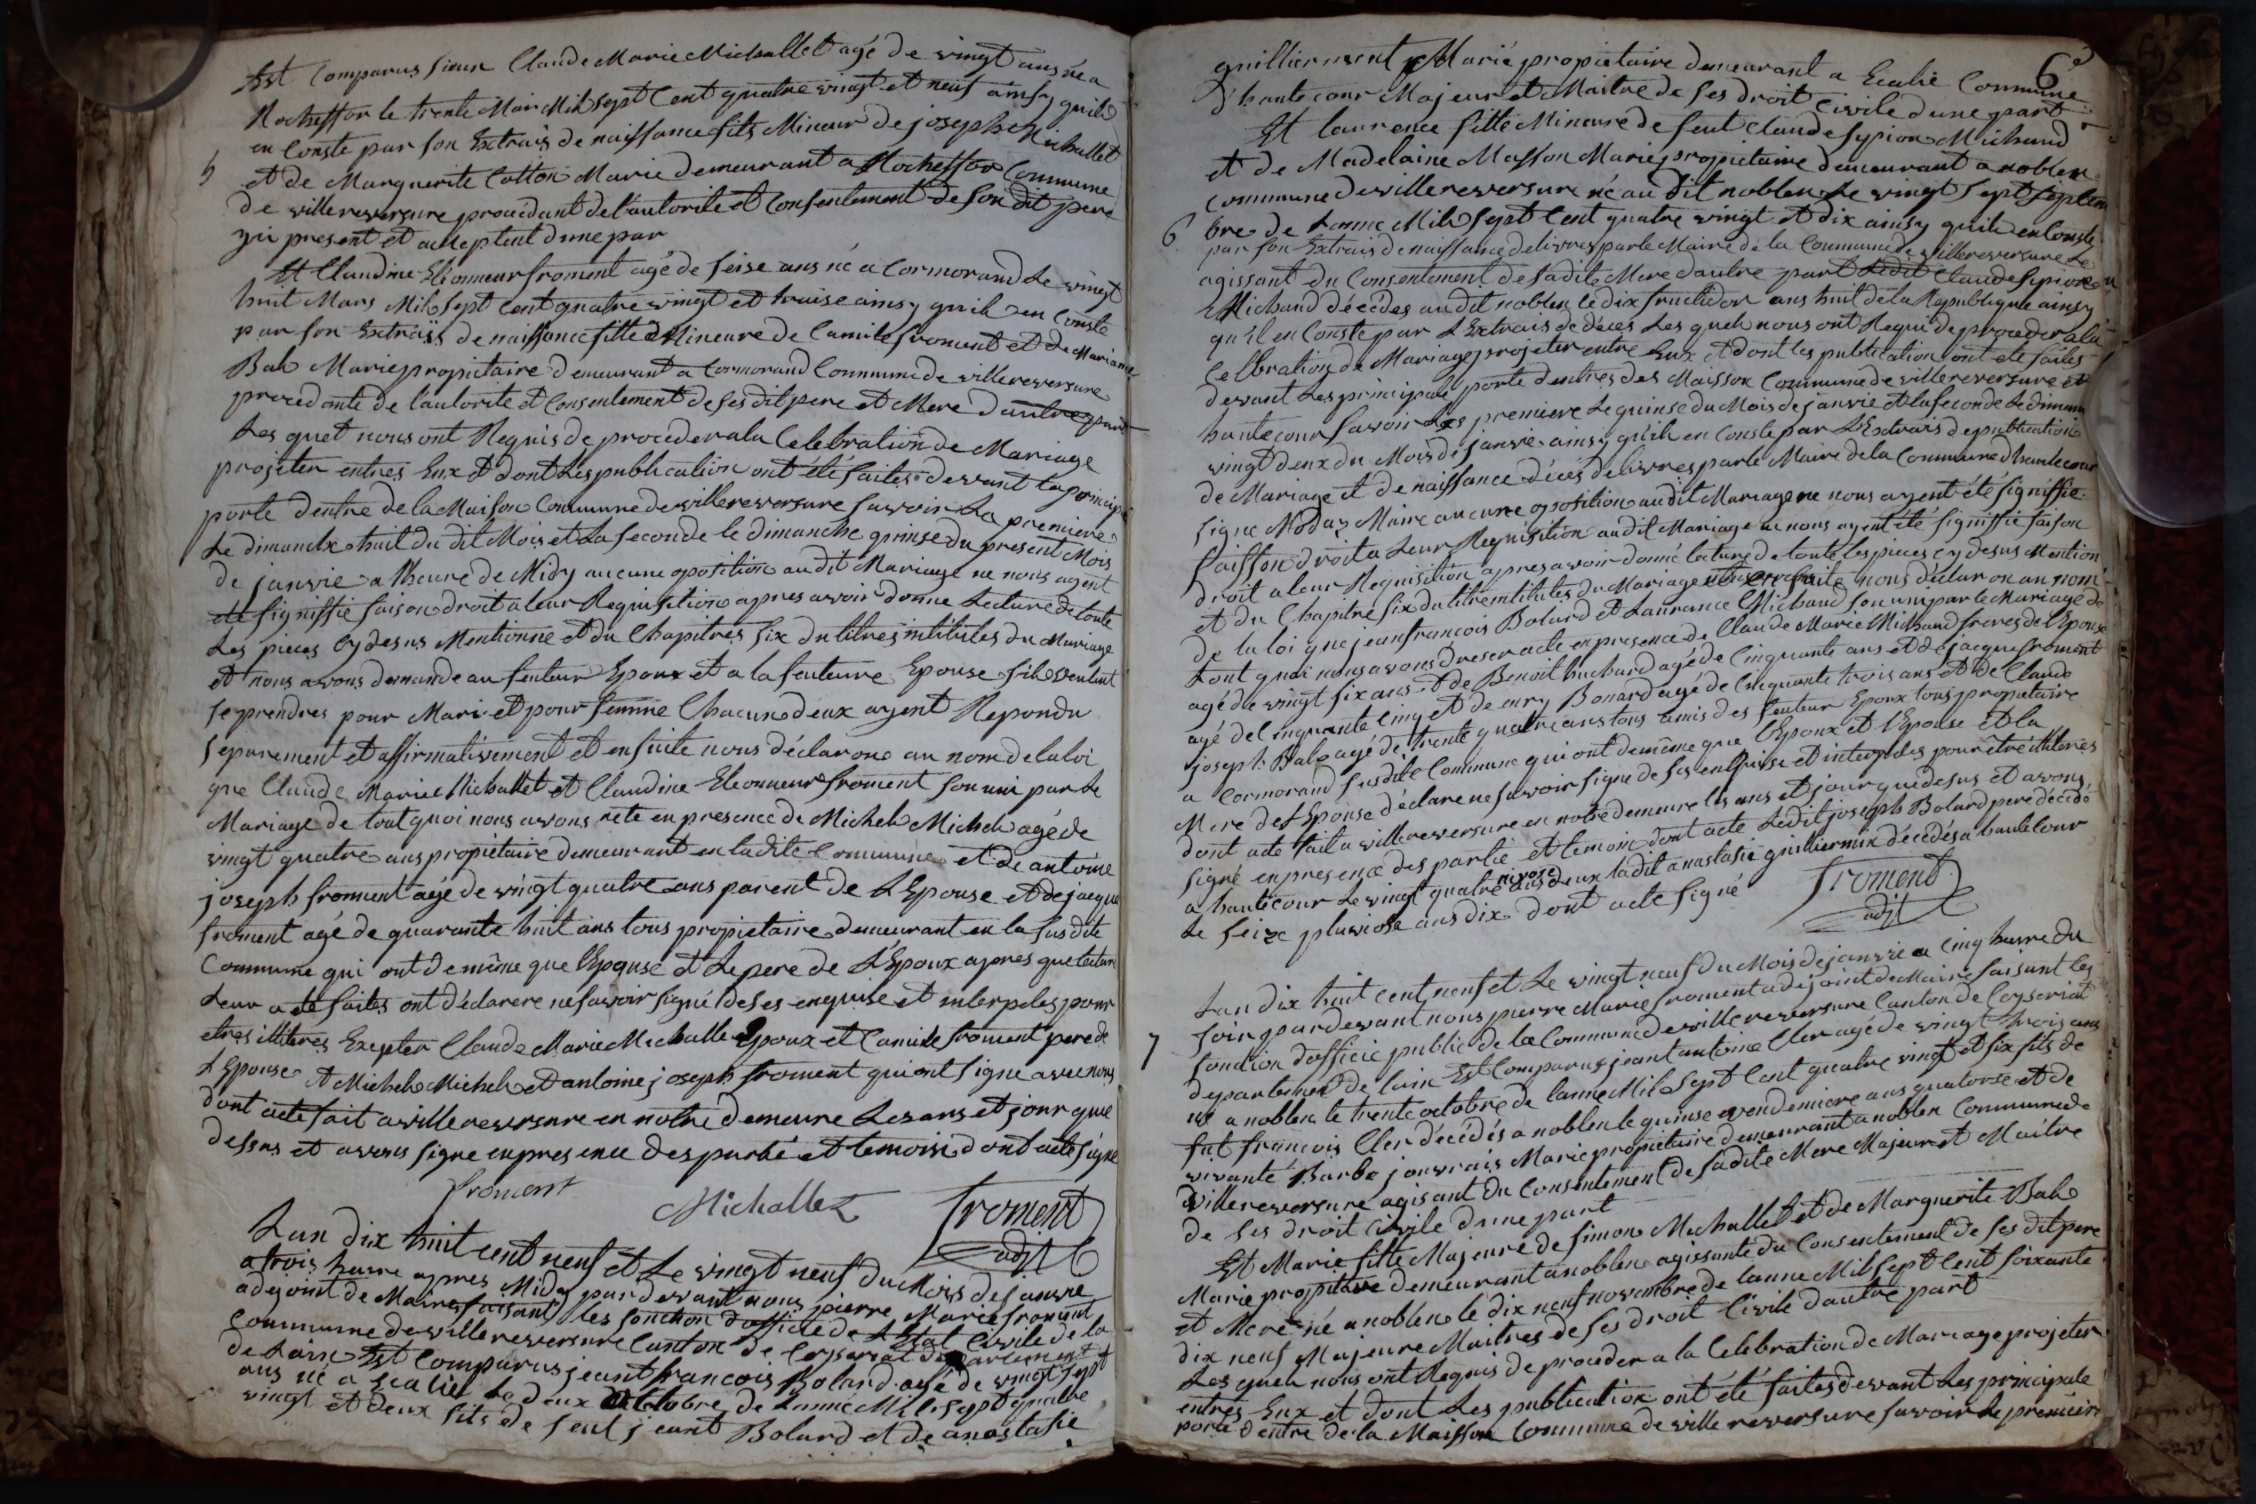 Est Comparus sieur Claude Marie Michallet agé de vingt ans né a
Rocheffor le trente Mai Mil sept Cent quatre vingt et neuf ainsy quil
en Conste par son Extrais de naissance fils Mineur de joseph Michallet
5
et de Marguerite Cotton Marie demeurant a Rocheffor Commune
de villereversure procedant de l'autorite et Consentement de son dit pere
yci present et acceptent d'une par
Et Claudine Eleonneur froment agé de seise ans né a Cormorand Le vingt
huit Mars Mil sept Cent quatre vingt et traise ainsy quil en Conste
par son Extrais de naissance fille Mineure de Camile froment et de Mariane
Bal Marie propietaire demeurant a Cormorand Commune de villereversure
procedante de l'autorite et Consentement de ses dit pere et Mere d'autre part
Les quet nous ont Requis de proceder a la Celebration de Mariage
projeter entres Eux et dont Les publication ont été faites devant la principale
porte d'entre de la Maison Commune de villereversure savoir La premiere
Le dimanche huit du dit Mois et La seconde le dimanche quinse du present Mois
de janvie a l'heure de Midy aucune oposition au dit Mariage ne nous ayent
été signiffie faison droit a leur Requisition apres avoir donne Lecture de toute
Les pieces cy desus Mentionne et du Chapitres six du titres intitules du Mariage
et nous avons demande au feuteur Epoux et a la feuteure Epouse sils veulent
se prendres pour Mari et pour femme Chacun deux ayent Repondu
separement et affirmativement et ensuite nous déclarons au nom de la loi
que Claude Marie Michallet et Claudine Eleonneur froment son uni par Le
Mariage de tout quoi nous avons acte en presence de Michel Michel agé de
vingt quatre ans propietaire demeurant en ladite Commune et de antoine
joseph froment agé de vingt quatre ans parent de L'Epouse et de jacque
froment agé de quarante huit ans tous propietaire demeurant en la susdite
Commune qui ont de même que l'Epouse et Le pere de L'Epoux apres que lecture
Leur a été faites ont déclarere ne savoir signé de ses enquise et interpeles pour
etres illiteres Exepter Claude Marie Michallet Epoux et Camile froment pere de
L'Epouse et Michel Michel et antoine joseph froment qui ont signe avec nous
dont acte fait a villereversure en notre demeure Les ans et jour que
dessus et avons signe en presence des partie et temoin dont acte signe
froment Michallet froment
adjt
L'an dix huit cent neuf et Le vingt neuf du Mois de janvie
a trois heure apres Midy par devant nous pierre Marie froment
adejoint de Maire faisant les fonction d'officié de L'Etat Civile de la
Commune de villereversure Canton de Ceyseriat departement
de L'ain Est Comparus jeant francois Bolard agé de vingt sept
ans né a Scalié Le deux Octobre de L'anne Mil sept quatre
vingt et deux fits de feut jeant Bolard et de anastasie
6
guilliermint Marié propietaire demeurant a Ecalie Commune
d'hautecour Majeur et Maitre de ses droit Civile d'une part
Et laurence fille Mineure de feut Claude sypion Michaud
et de Madelaine Masson Marie propietaire demeurant a noblen
Commune de villereversure né au dit noblen Le vingt sept septem
6
bre de L'anne Mil sept Cent quatre vingt et dix ainsy quil en Conste
par son Extrais de naissance delivres par le Maire de la Commune de villereversure Le
agissant du Consentement de sa dite Mere d'autre part Ledit Claude sypion
Michaud décédes au dit noblen le dix fructidor ans huit de la Republique ainsy
qu'il en Conste par L'Extrais de déces Les quels nous ont Requi de proceder a la
Celbration de Mariage projeter entre Eux et dont les publication ont été faites
devant Les principale porte d'entres des Maisson Commune de villereversure et
hautecour savoir Les premiere Le quinse du Mois de janvie et la seconde Le dimanche
vingt deux du Mois de janvie ainsy qu'il en Conste par L'Extrais de publication
de Mariage et de naissance d'écés delivres par le Maire de la Commune d'hautecour
signe Maire aucune oposition au dit Mariage ne nous ayent été signiffie
faisson droit a Leur Requisition au dit Mariage ne nous ayent été signiffie faison
droit a leur Requisition apres avoir donné lecture de toute les pieces cy desus Mention
et du Chapitré six du titre intitules du Mariage et ensuite nous déclaron au nom
de la loi que jean francois Bolard et Laurence Michaud son uni par le Mariage de
tout quoi nous avons dreser acte en presence de Claude Marie Michaud freres de L'Epouse
agé de vingt six ans et de Benoit huchard agé de Cinquante ans et de jacque froment
agé de Cinquante Cinq et de enry Bonard agé de Cinquante trois ans et de Claude
joseph Bal agé de trente quatre ans tous amis des feuteur Epoux tous propietaire
a Cormorand susdite Commune qui ont de même que l'Epoux et l'Epouse et la
Mere de L'Epouse déclare ne savoir signe de ses enquise et interpeles pour être illiteres
dont acte fait a villereversure en notre demeure les ans et jour que desus et avons
signe en presence des partie et temoin dont acte Ledit joseph Bolard pere décédé
a hautecour Le vingt quatre nivose ans deux ladit anastasie guilliermin décédés a hautecour
Le seize pluviose ans dix dont acte signé froment
adjt
L'an dix huit cent neuf et Le vingt neuf du Mois de janvie a cinq heure du
soir par devant nous pierre Marie froment adejoint de Maire faisant les
7
fonction d'officié public de la Commune de villereversure Canton de Ceyseriat
departement de L'ain Est Comparus jeant antoine Cler agé de vingt trois ans
né a noblen le trente octobre de L'anne Mil sept Cent quatre vingt et six fils de
fut francois Cler décédés a noblen le quinse vendemiere ans quatorse et de
vivante Barbe jouvrais Marie propietaire demeurant a noblen Commune de
villereversure agisant du Consentement de sa dite Mere Majeur et Maitre
de ses droit Civile d'une part
Et Marie fille Majeure de simon Michallet et de Marguerite Bal
Marie propitaire demeurant a noblen agissante du Consentement de ses dit pere
et Mere né a noblen le dix neuf novembre de l'anne Mil sept Cent soixante
dix neuf Majeure Maitres de ses droit Civile d'autre part
Les quels nous ont Requis de proceder a la Celebration de Mariage projeter
entres Eux et dont Les publication ont été faites devant Les principale
porte d'entre de la Maisson Commune de villereversure savoir La premiere